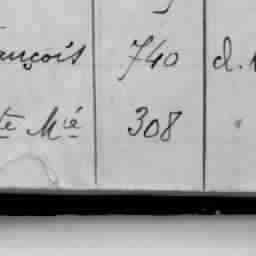 ançois 740 d.
te Mié 308 "